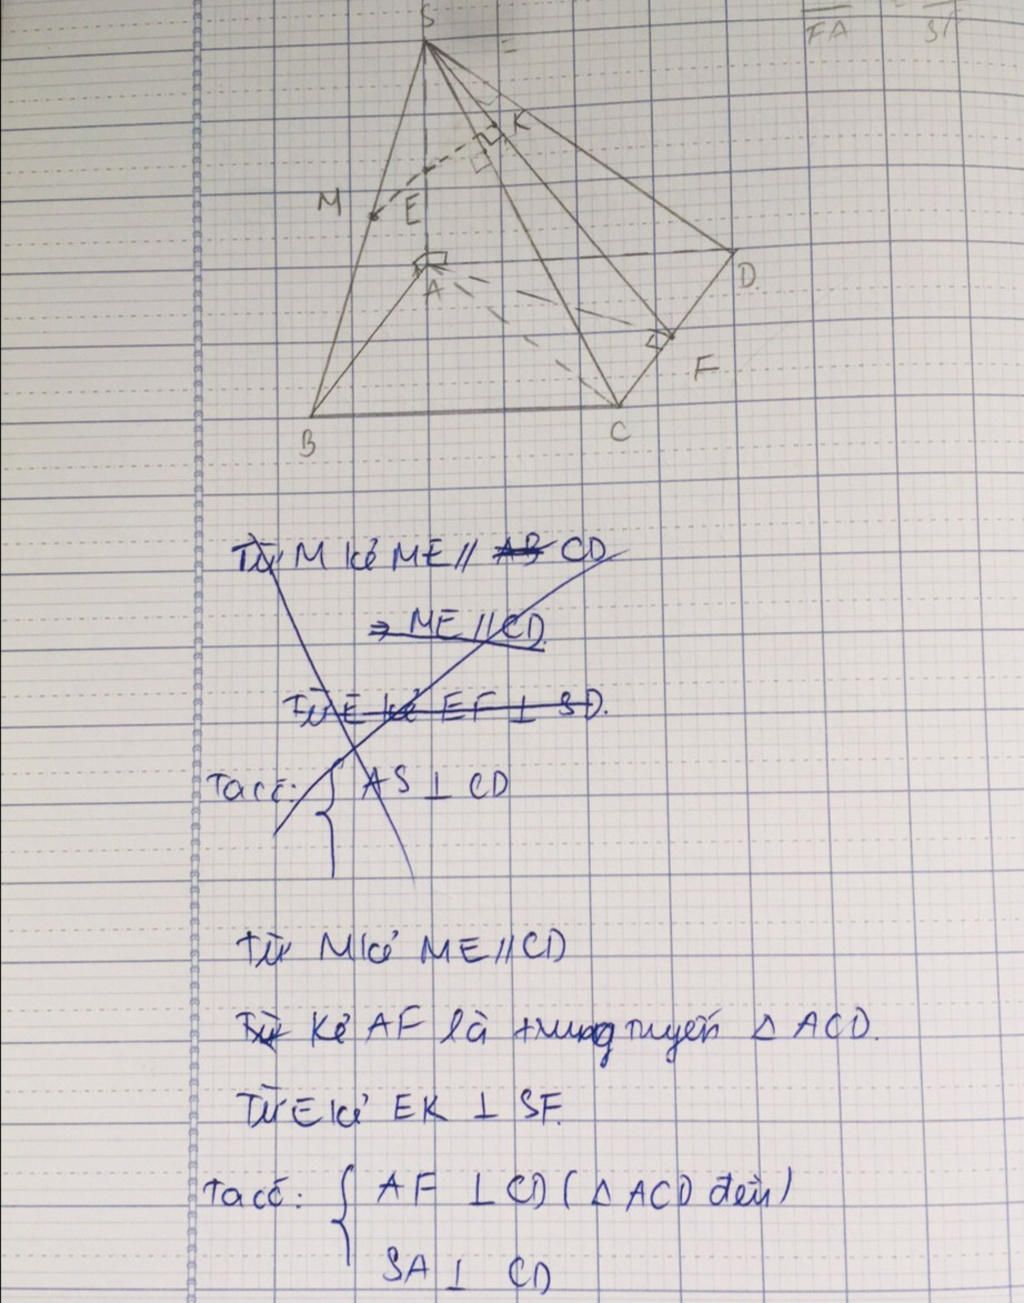 S
FA
SF
K
M
E
A
D
F
B
C
Từ M kẻ ME // AB CD
⇒ ME // CD.
Từ E kẻ EF ⊥ SD.
Ta có: { AS ⊥ CD
Từ M kẻ ME // CD
Từ Kẻ AF là trung tuyến Δ ACD.
Từ E kẻ EK ⊥ SF.
Ta có: { AF ⊥ CD ( Δ ACD đều )
SA ⊥ CD